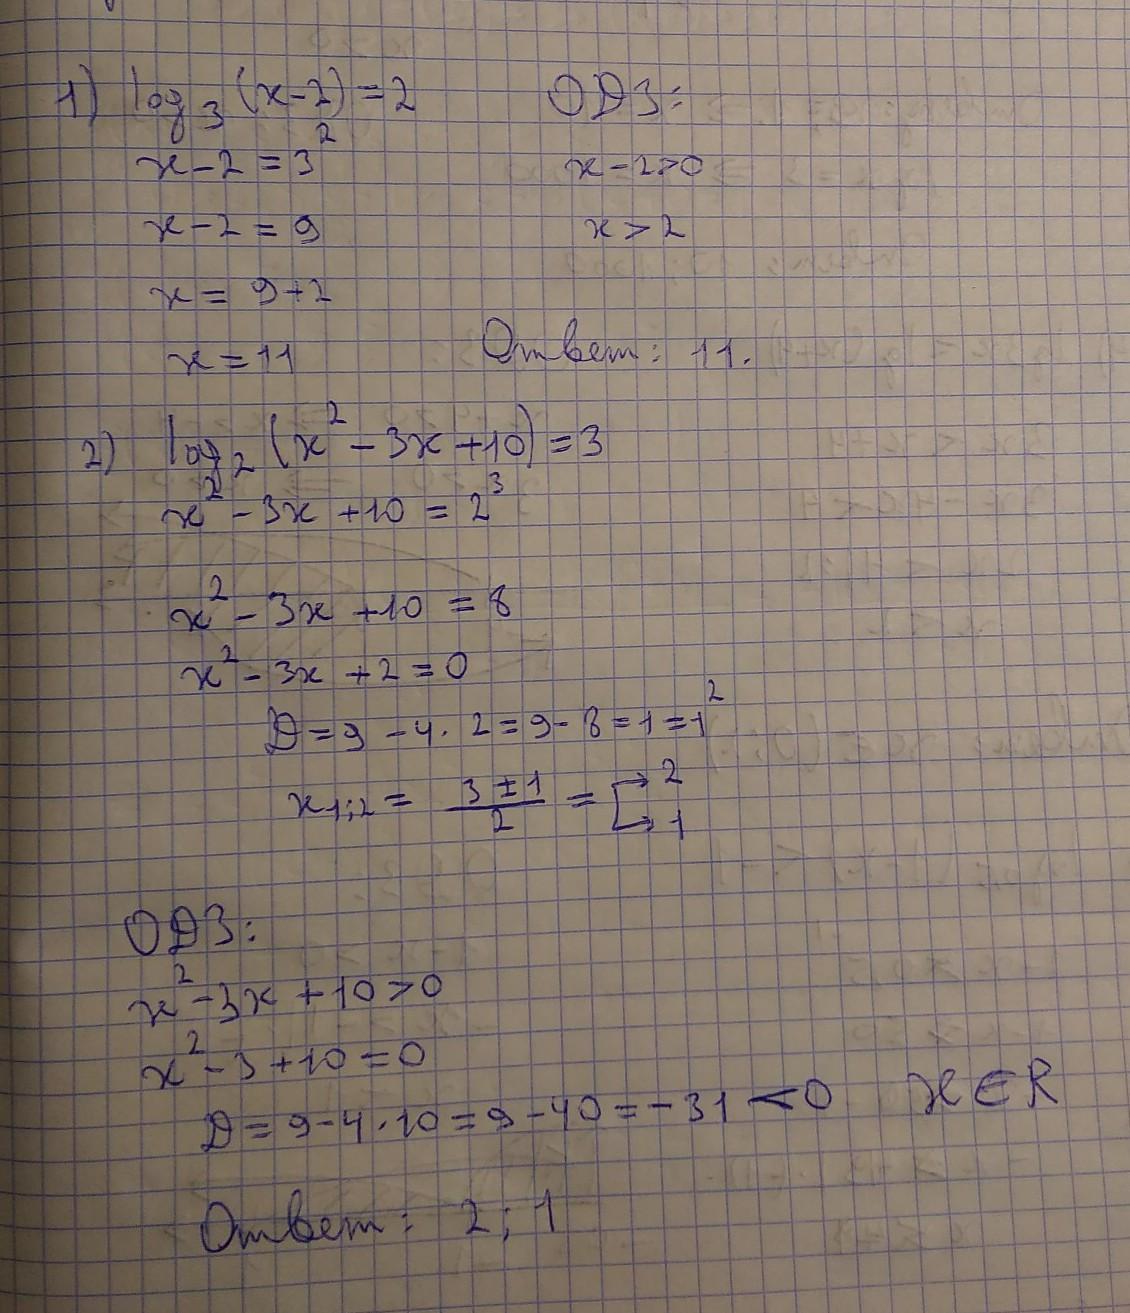 1) log₃ (x-2) = 2
ОДЗ:
x-2 = 3²
x-2>0
x-2 = 9
x > 2
x = 9+2
x = 11
Ответ: 11.
2) log₂ (x² - 3x + 10) = 3
x² - 3x + 10 = 2³
x² - 3x + 10 = 8
x² - 3x + 2 = 0
D = 9 - 4 · 2 = 9 - 8 = 1 = 1²
x₁;₂ = (3 ± 1)/2 = [→ 2 → 1
ОДЗ:
x² - 3x + 10 > 0
x² - 3 + 10 = 0
D = 9 - 4 · 10 = 9 - 40 = -31 < 0 x ∈ R
Ответ: 2; 1